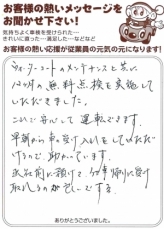 お客様の熱いメッセージを
お聞かせ下さい!
気持ちよく車検を受けられた…
きれいに直った…満足した…などなど
お客様の熱い応援が従業員の元気の元になります!
ウォーターコートのメンテナンスと共に
12ヶ月の無料点検を実施して
いただきました。
これで安心して運転できます。
早朝から車の受け入れをしていただ
けるので、助かっています。
出社前に預けて、お昼帰りに受け
取れるのが嬉しいです。
ありがとうございました。